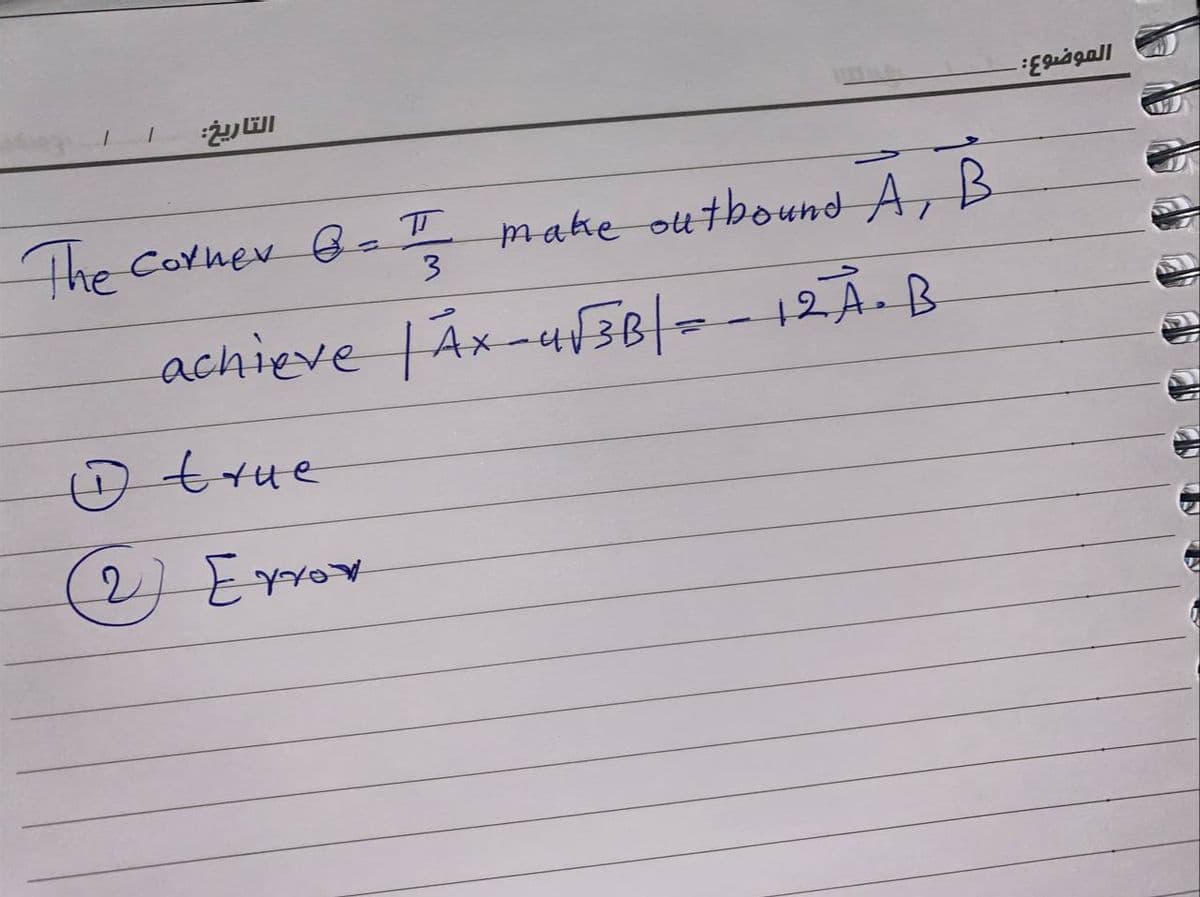 الموضوع:
التاريخ: / /
The Corner θ = π/3 make outbound A⃗, B⃗
achieve |A⃗x-4√3B| = - 12A⃗.B
① true
② Error